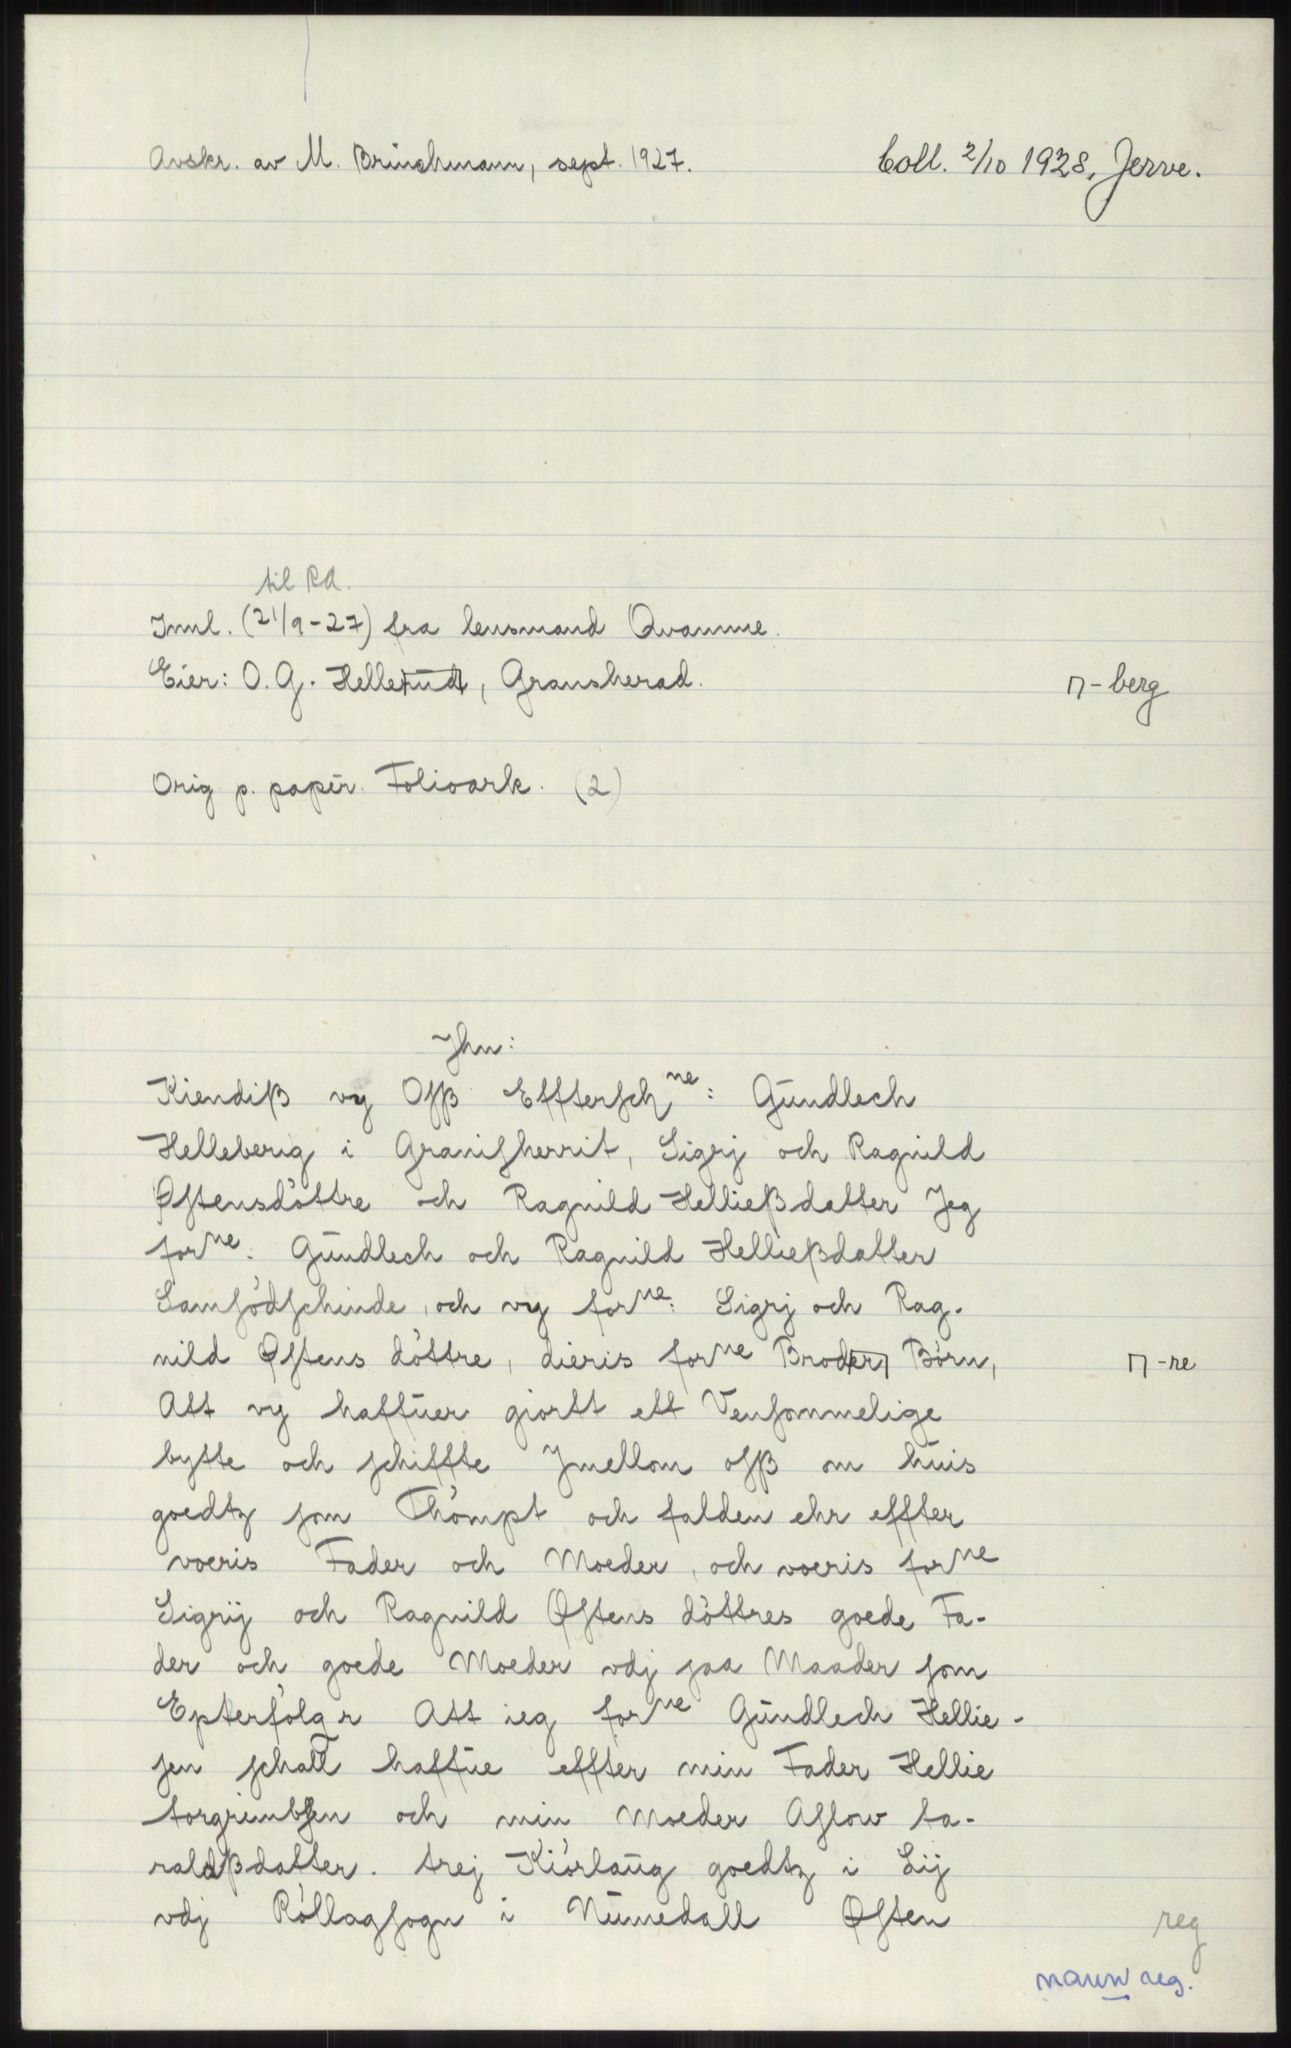 Avskr. av M. Brinchmann, sept. 1927.
Coll. 2/10 1928, Jerve.
til RA.
Innl. (21/9-27) fra lensmand Qvamme.
Eier: O. G. Hellerudt, Gransherad.
Π-berg
Orig p. papir. Folioark. (2)
Jhn:
Kiendiß vy Oſß Effterſch ne: Gundlech
Helleberig i Graniſherrit, Sigrj och Ragnild
Øſtensdöttre och Ragnild Helließdatter Jeg
for ne: Gundlech och Ragnild Helließdatter
Samſödſchinde, och vy for ne: Sigrj och Rag-
nild Øſtens döttre, dieris for ne Broder Börn,
Π-re
Att vy haffuer giortt ett Venſommelige
bytte och ſchiffte Jmellom oſß om huis
goedtz ſom Thömpt och falden ehr effter
voeris Fader och Moeder, och voeris for ne
Sigrij och Ragnild Øſtens döttres goede Fa-
der och goede Moeder vdj ſaa Maader ſom
Epterfölgr Att ieg for ne Gundlech Hellie-
ſen ſchall haffue effter min Fader Hellie
torgrimbſen och min Moeder Aſlow ta-
raldßdatter. trej Kiörlaug goedtz i Lij
vdj Röllagſogn i Numedall Øſten
reg
navn reg.